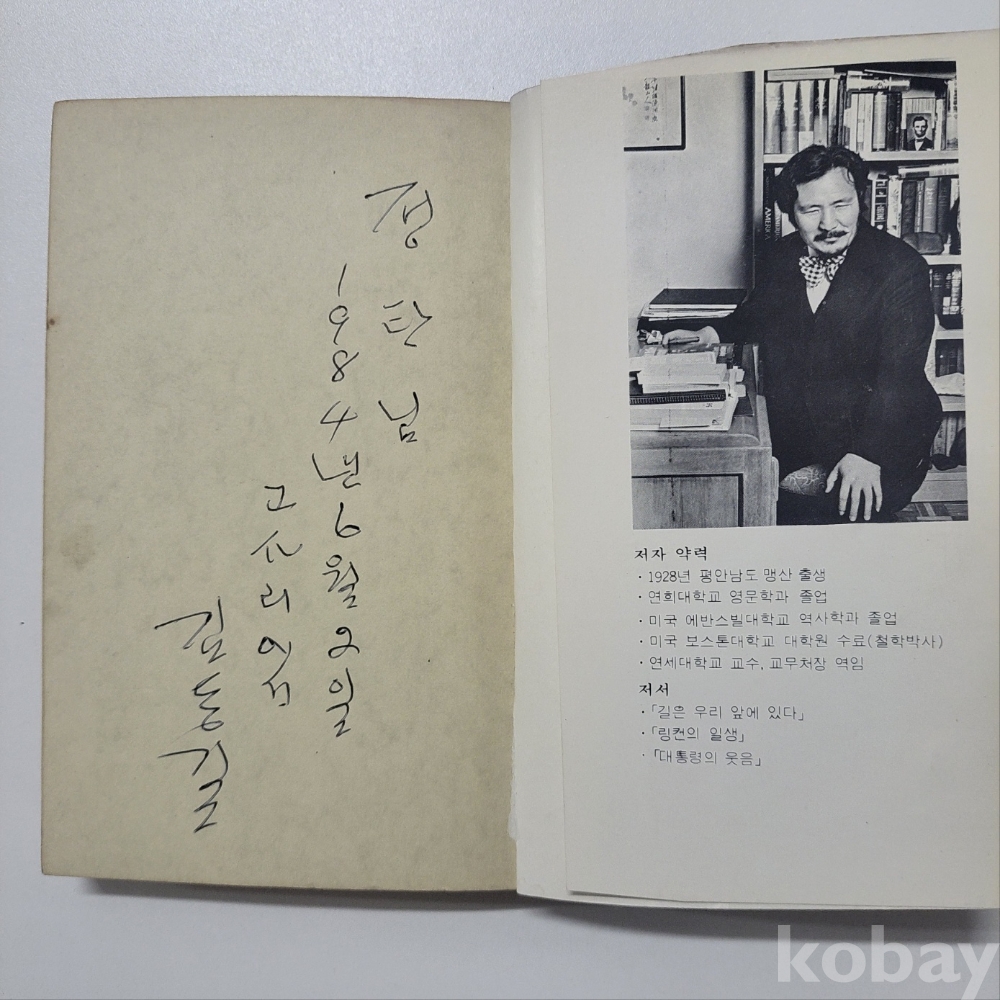 정탄님
1984년 6월 2일
고사리에서
김동길
AMERICA
저자 약력
· 1928년 평안남도 맹산 출생
· 연희대학교 영문학과 졸업
· 미국 에반스빌대학교 역사학과 졸업
· 미국 보스톤대학교 대학원 수료(철학박사)
· 연세대학교 교수, 교무처장 역임
저서
· 「길은 우리 앞에 있다」
· 「링컨의 일생」
· 「대통령의 웃음」
kobay